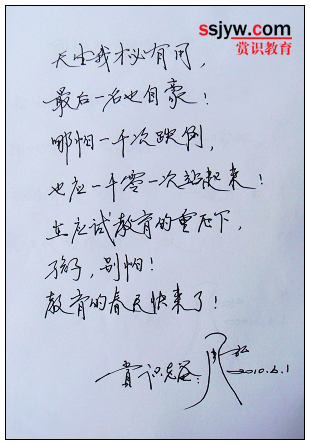 ssjyw.com
赏识教育
天生我材必有用，
最后一名也自豪！
哪怕一千次跌倒，
也应一千零一次站起来！
在应试教育的重压下，
孩子，别怕！
教育的春天快来了！
赏识老爸：周弘
2010.6.1